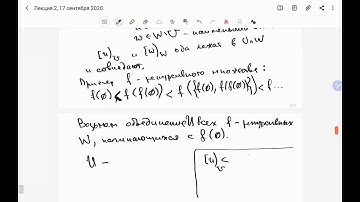 Лекция 2, 17 сентября 2020.
w ∈ W∖U – наименьший
[u]_U и [w]_W оба лежат в U∩W
и совпадают,
Пример f-рекурсивного множества:
f(∅) < f(f(∅)) < f({f(∅), f(f(∅))}) < f...
Возьмем объединение U всех f-рекурсивных
W, начинающихся с f(∅).
U –
[u]_U <